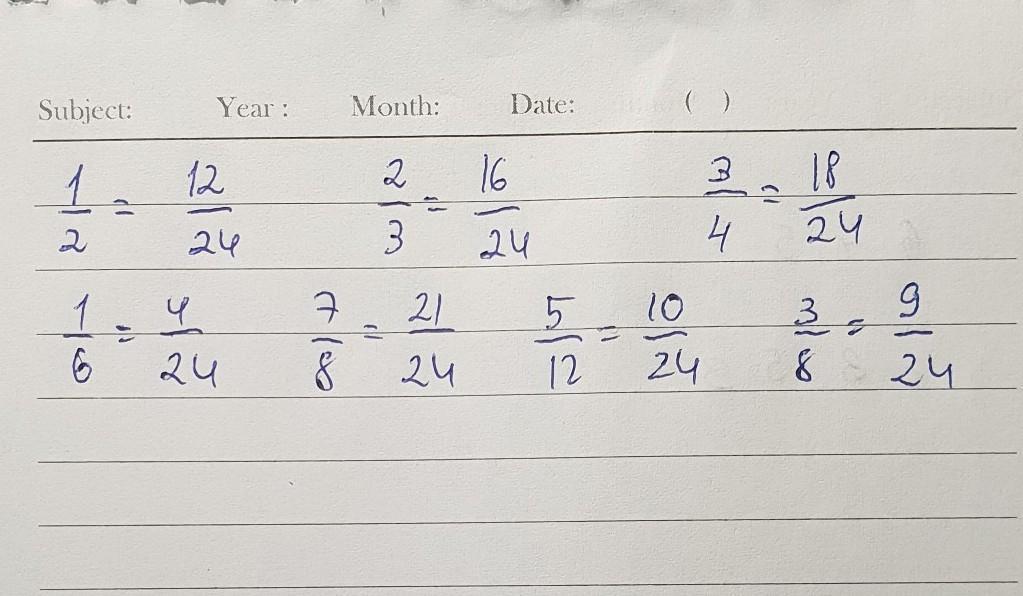 Subject: Year : Month: Date: ( )
1/2 = 12/24 2/3 = 16/24 3/4 = 18/24
1/6 = 4/24 7/8 = 21/24 5/12 = 10/24 3/8 = 9/24